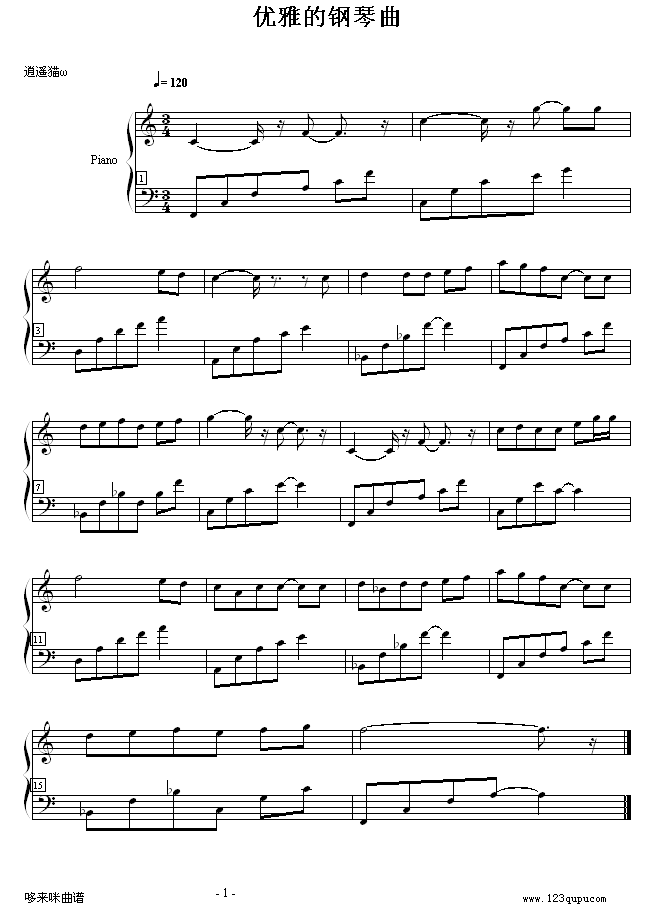 优雅的钢琴曲
逍遥猫ω
♩= 120
Piano
1
3
7
11
15
哆来咪曲谱
- 1 -
www.123qupu.com